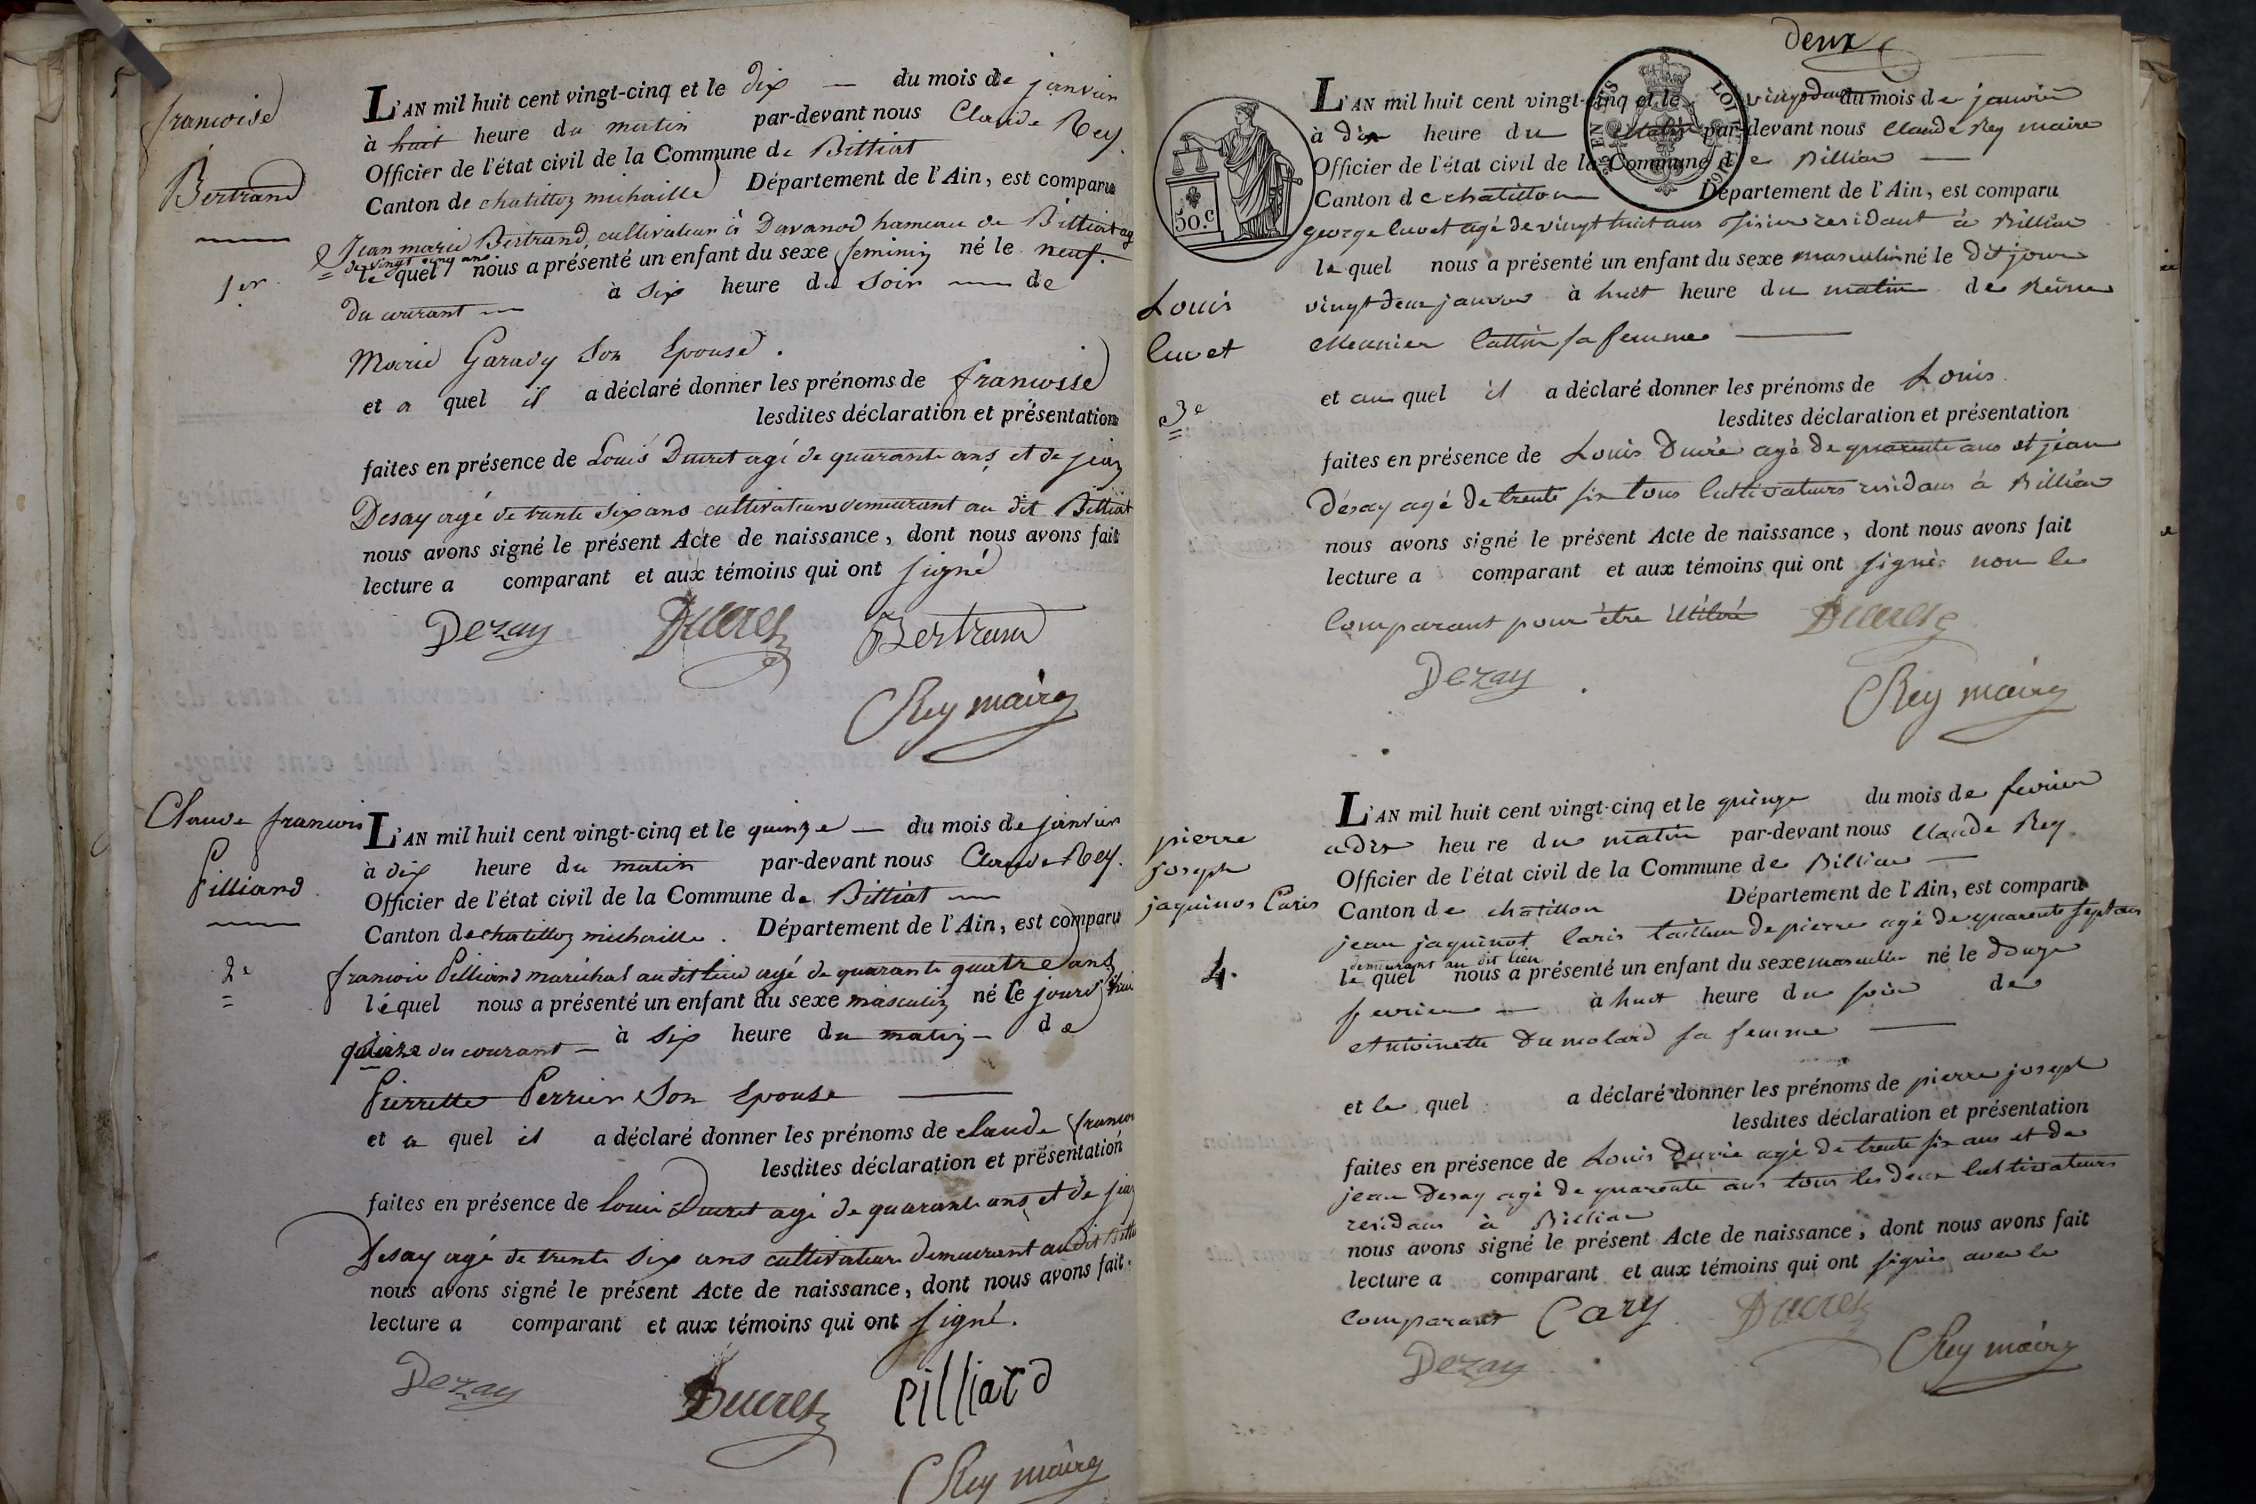 francoise
Bertrand
1er
L'AN mil huit cent vingt-cinq et le dix du mois de janvier
à huit heure du matin par-devant nous Claude Rey.
Officier de l'état civil de la Commune de Billiat
Canton de chatillon michaille Département de l'Ain, est comparu
Jean marie Bertrand, cultivateur à Davanod hameau de Billiat ag
de vingt cinq ans
le quel nous a présenté un enfant du sexe feminin né le neuf.
du courant à six heure du soir de
Marie Garady son Epouse.
et a quel il a déclaré donner les prénoms de francoise
lesdites déclaration et présentation
faites en présence de Louis Ducret agé de quarante ans et de jean
Desay agé de trente six ans cultivateurs demeurant au dit Billiat
nous avons signé le présent Acte de naissance, dont nous avons fait
lecture a comparant et aux témoins qui ont signé
Dezay Ducret Bertrand
Rey maire
Claude francois
Pilliard
2e
L'AN mil huit cent vingt-cinq et le quinze du mois de janvier
à dix heure du matin par-devant nous Claude Rey.
Officier de l'état civil de la Commune de Billiat
Canton de chatillon michaille. Département de l'Ain, est comparu
francois Pilliard maréchal au dit lieu agé de quarante quatre ans
le quel nous a présenté un enfant du sexe masculin né le jourd'hui
quinze du courant à six heure du matin de
Pierrette Perrier son Epouse
et a quel il a déclaré donner les prénoms de claude francois
lesdites déclaration et présentation
faites en présence de louis Ducret agé de quarante ans et de jean
Desay agé de trente six ans cultivateurs demeurant au dit Billiat
nous avons signé le présent Acte de naissance, dont nous avons fait
lecture a comparant et aux témoins qui ont signé.
Dezay Ducret Pilliard
Rey maire
deux
50.c
LOI
Louis
luvet
3e
L'AN mil huit cent vingt-cinq et le vingt deux du mois de janvier
à dix heure du matin par-devant nous Claude Rey maire
Officier de l'état civil de la Commune de Billiat
Canton de chatillon Département de l'Ain, est comparu
george luvet agé de vingt huit ans residant à Billiat
le quel nous a présenté un enfant du sexe masculin né le dit jour
vingt deux janvier à huit heure du matin de Reine
Meunier lattin sa femme
et au quel il a déclaré donner les prénoms de Louis
lesdites déclaration et présentation
faites en présence de Louis Ducré agé de quarente ans et jean
Désay agé de trente six tous cultivateurs residans à Billiat
nous avons signé le présent Acte de naissance, dont nous avons fait
lecture a comparant et aux témoins qui ont signés non le
comparant pour être illitéré Ducret
Dezay
Rey maire
pierre
joseph
jaquinot Caris
4.
L'AN mil huit cent vingt-cinq et le quinze du mois de fevrier
a dix heure du matin par-devant nous Claude Rey
Officier de l'état civil de la Commune de Billiat
Canton de chatillon Département de l'Ain, est comparu
jean jaquinot Caris tailleur de pierre agé de quarente sept ans
demeurant au dit lieu
le quel nous a présenté un enfant du sexe masculin né le douze
fevrier à huit heure du soir de
Antoinette Dumolard sa femme
et le quel a déclaré donner les prénoms de pierre joseph
lesdites déclaration et présentation
faites en présence de Louis Ducré agé de trente six ans et de
jean Desay agé de quarente ans tous les deux cultivateurs
residans à Billiat
nous avons signé le présent Acte de naissance, dont nous avons fait
lecture a comparant et aux témoins qui ont signés avec le
comparant Cary Ducret
Dezay Rey maire